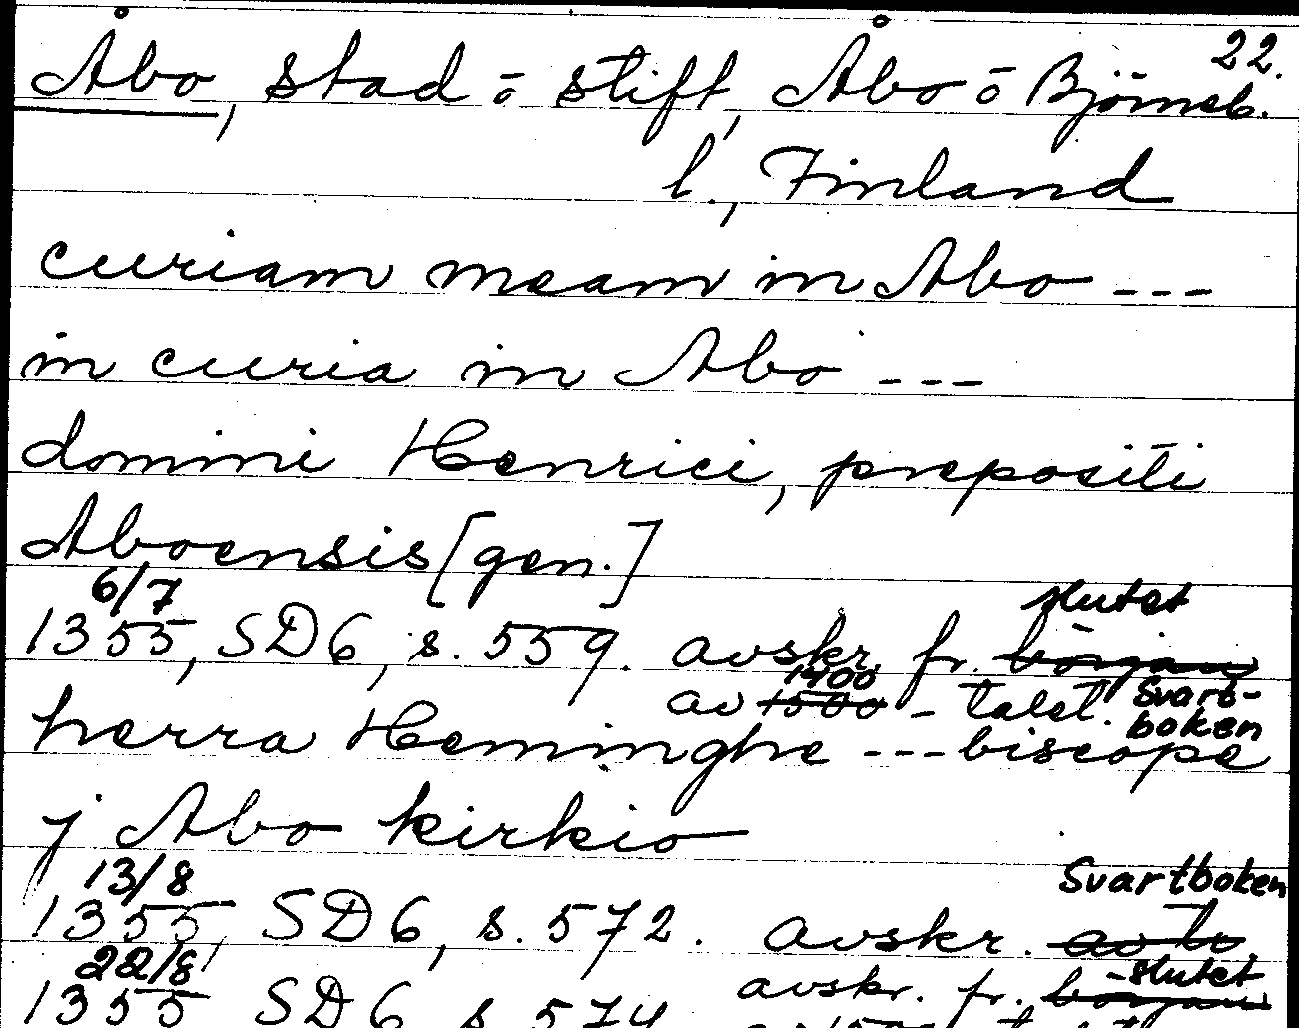 22.
Åbo, stad o stift, Åbo o Björneb.
l., Finland
curiam meam in Abo ---
in curia in Abo ---
domini Henrici, prepositi
Aboensis [gen.]
6/7
1355, SD6, s. 559. avskr. fr. början slutet
av 1500 1400-talet. Svart-
boken
herra Heminghe --- biscope
j Abo kirkio
13/8 Svartboken
1355, SD6, s. 572. avskr.
22/8 avskr. fr. början -slutet
1355 SD6 s. 574